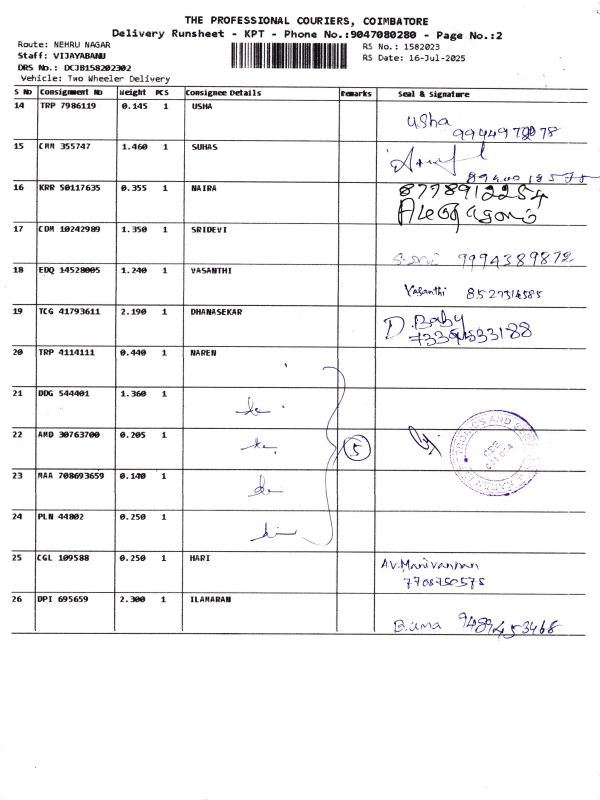 THE PROFESSIONAL COURIERS, COIMBATORE
Delivery Runsheet - KPT - Phone No.:9047080280 - Page No.:2
Route: NEHRU NAGAR
Staff: VIJAYABANU
DRS No.: DCJB158202302
Vehicle: Two Wheeler Delivery
RS No.: 1582023
RS Date: 16-Jul-2025
S No Consignment No Weight PCS Consignee Details Remarks Seal & Signature
14 TRP 7986119 0.145 1 USHA
Usha
15 CMM 355747 1.460 1 SUHAS
16 KRR 50117635 0.355 1 NAIRA
8778912254
17 CDM 10242989 1.350 1 SRIDEVI
9994389872
18 EDQ 14528005 1.240 1 VASANTHI
Vasanthi 8527314585
19 TCG 41793611 2.190 1 DHANASEKAR
D. Baby
20 TRP 4114111 0.440 1 NAREN
21 DDG 544401 1.360 1
22 AMD 30763700 0.205 1 5
23 MAA 708693659 0.140 1
24 PLN 44802 0.250 1
25 CGL 109588 0.250 1 HARI
A.V. Manivannan
7708750575
26 DPI 695659 2.300 1 ILAMARAN
B. uma 9489453468